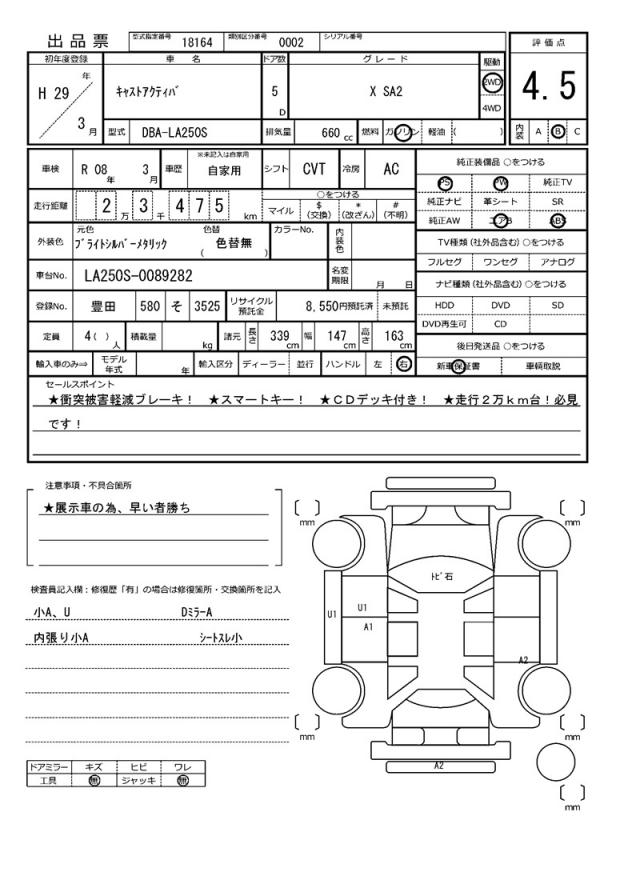 出品票
型式指定番号 18164 類別区分番号 0002 シリアル番号
評価点
4.5
内装 A B C
初年度登録 車名 ドア数 グレード 駆動
H 29 年 3 月
キャストアクティバ 5 D X SA2 2WD 4WD
型式 DBA-LA250S 排気量 660 cc 燃料 ガソリン 軽油 ( )
車検 R 08 年 3 月 車歴 ※未記入は自家用 自家用 シフト CVT 冷房 AC
走行距離 2 万 3 千 4 7 5 km
○をつける
マイル $(交換) *(改ざん) #(不明)
外装色 元色 ブライトシルバーメタリック 色替 ( 色替無 ) カラーNo. 内装色
車台No. LA250S-0089282 名変期限 月 日
登録No. 豊田 580 そ 3525 リサイクル預託金 8,550円預託済 未預託
定員 4( ) 人 積載量 kg 諸元 長さ 339 cm 幅 147 cm 高さ 163 cm
輸入車のみ⇒ モデル年式 年 輸入区分 ディーラー 並行 ハンドル 左 右
純正装備品 ○をつける
PS PW 純正TV
純正ナビ 革シート SR
純正AW エアB ABS
TV種類 (社外品含む) ○をつける
フルセグ ワンセグ アナログ
ナビ種類 (社外品含む) ○をつける
HDD DVD SD
DVD再生可 CD
後日発送品 ○をつける
新車保証書 車輌取説
セールスポイント
★衝突被害軽減ブレーキ! ★スマートキー! ★CDデッキ付き! ★走行2万km台!必見
です!
注意事項・不具合箇所
★展示車の為、早い者勝ち
検査員記入欄:修復歴「有」の場合は修復箇所・交換箇所を記入
小A、U DミラーA
内張り小A シートスレ小
ドアミラー キズ ヒビ ワレ
工具 無 ジャッキ 無
mm
mm
トビ石
U1
U1
A1
A2
mm
mm
A2
mm